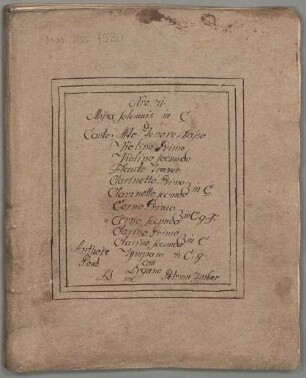 Mus. Mss 4530
Nro. 21.
Missa solemnis in C
Canto, Alto Tenore, Basso
Violino Primo,
Violino secundo
Flauto Traver
Clarinetto Primo
Clarinetto secundo in C
Corno Primo
Corno secundo in C. g. F.
Clarino Primo
Clarino secundo in C
Tympani in C. g.
con
Organo
Authore
Petrum Huber